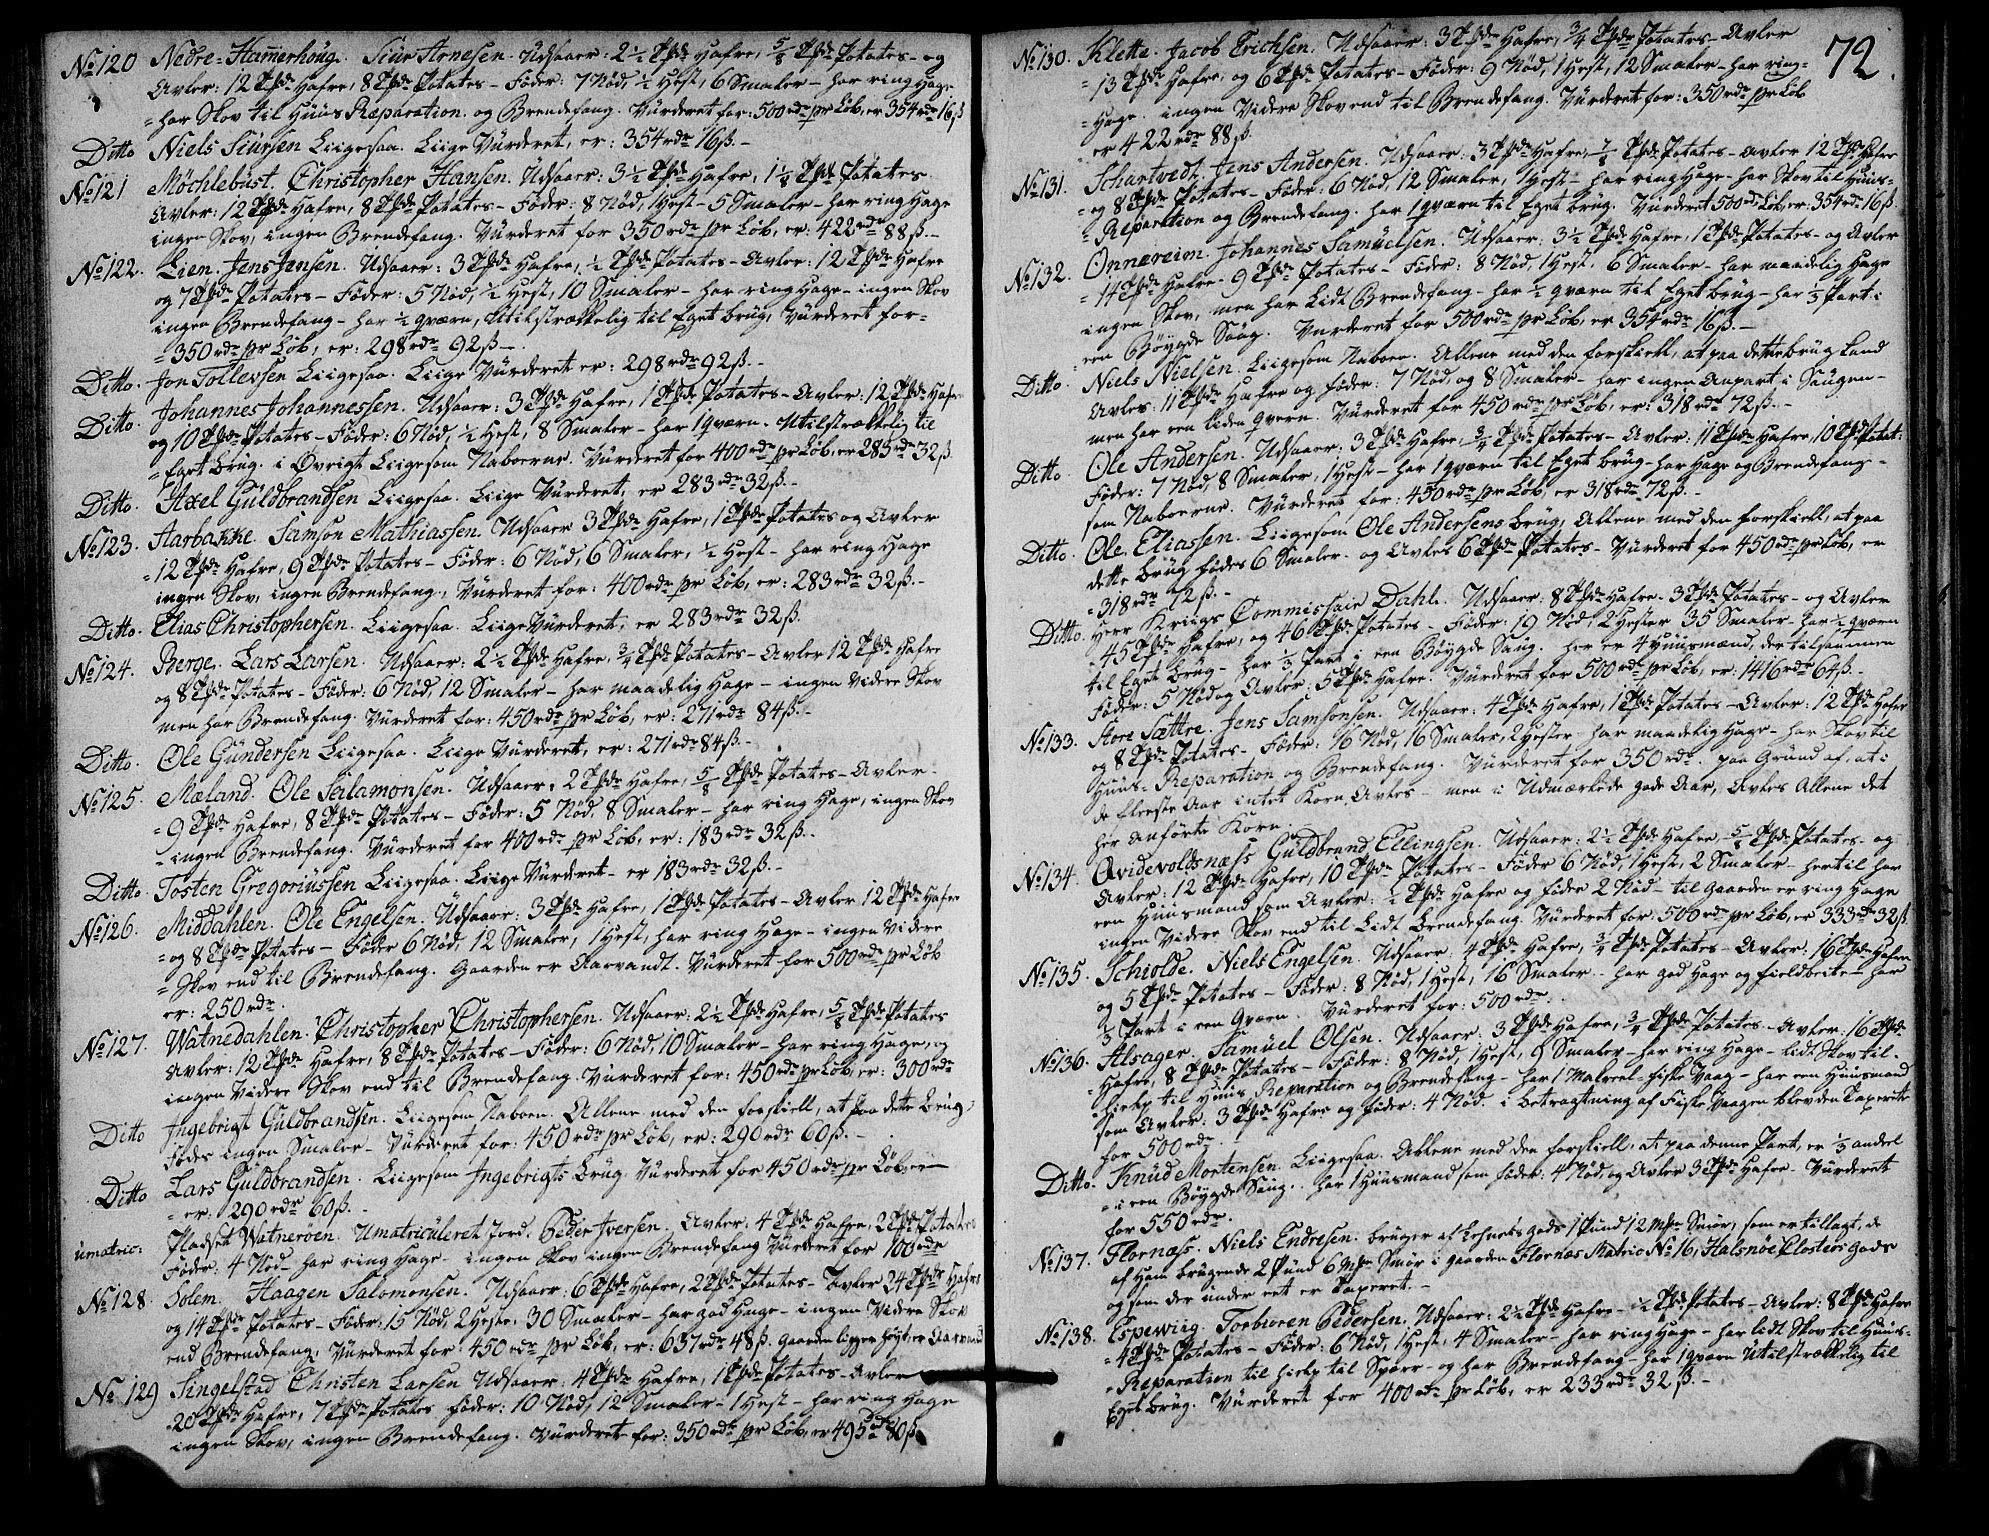 No 120 Nedre-Hamerhoug. Siur Arnesen. Udsaaer: 2½ Tønde Hafre, 5/8 Tønde Potates - og
Avler: 12 Tønde Hafre, 8 Tønde Potates - Føder: 7 Nød, ½ Hest, 6 Smaler - har ring Hage
= har Skov til Huus Reparation og Brendefang. Vurderet for: 500 rdr pr Løb, er 354 rdr 16 ß
Ditto Niels Siursen Liigesaa. Liige Vurderet, er: 354 rdr 16 ß. -
No 121 Mochlebust. Christopher Hansen. Udsaaer: 3½ Tønde Hafre, 1 1/8 Tønde Potates
Avler: 12 Tønde Hafre, 8 Tønde Potates - Føder: 8 Nød, 1 Hest - 5 Smaler - har ring Hage
ingen Skov, ingen Brendefang. Vurderet for 350 rdr pr Løb, er: 422 rdr 88 ß. -
No 122. Lien. Jens Jensen. Udsaaer: 3 Tønde Hafre, ½ Tønde Potates - Avler: 12 Tønde Hafre
og 7 Tønde Potates - Føder: 5 Nød, ½ Hest, 10 Smaler - har ring Hage - ingen Skov
ingen Brendefang - har ½ qværn, Utilstrækkelig til Eget brug, Vurderet for =
= 350 rdr pr Løb, er: 298 rdr 92 ß -
Ditto. Jon Tollevsen Liigesaa. Liige Vurderet er: 298 rdr 92 ß. -
Ditto. Johannes Johannessen. Udsaaer: 3 Tønde Hafre, 1 Tønde Potates - Avler: 12 Tønde Hafre
og 10 Tønde Potates - Føder: 6 Nød, ½ Hest, 8 Smaler - har 1 qværn - Utilstrækkelig til
= Eget brug. i Øvrigt Liigesom Naboerne. Vurderet for 400 rdr pr Løb, er 283 rdr 32 ß.
Ditto. Axel Guldbrandsen Liigesaa. Liige Vurderet, er 283 rdr 32 ß. -
No 123. Aarbakke. Samson Mathiassen. Udsaaer 3 Tønde Hafre, 1 Tønde Potates og Avler
= 12 Tønde Hafre, 9 Tønde Potates - Føder: 6 Nød, 6 Smaler, ½ Hest - har ring Hage
ingen Skov, ingen Brendefang, Vurderet for: 400 rdr pr Løb, er: 283 rdr 32 ß. -
Ditto. Elias Christophersen. Liigesaa. Liige Vurderet, er 283 rdr 32 ß.
No 124. Berge. Lars Larsen. Udsaaer: 2½ Tønde Hafre, ¾ Tønde Potates - Avler 12 Tønde Hafre
og 8 Tønde Potates - Føder: 6 Nød, 12 Smaler - har maadelig Hage - ingen Videre Skov
men har Brendefang. Vurderet for: 450 rdr pr Løb, er: 271 rdr 84 ß. -
Ditto. Ole Gundersen Liigesaa. Liige Vurderet, er: 271 rdr 84 ß. -
No 125. Mæland. Ole Salamonsen. Udsaaer: 2 Tønde Hafre, 5/8 Tønde Potates - Avler -
= 9 Tønde Hafre, 8 Tønde Potates - Føder: 5 Nød, 8 Smaler - har ring Hage, ingen Skov
- ingen Brendefang. Vurderet for 400 rdr pr Løb, er: 183 rdr 32 ß. -
Ditto. Tosten Gregoriussen Liigesaa. Liige Vurderet - er 183 rdr 32 ß. -
No 126. Middahlen. Ole Engelsen. Udsaaer: 3 Tønde Hafre, 1 Tønde Potates - Avler 12 Tønde Hafre
= og 8 Tønde Potates - Føder 6 Nød, 12 Smaler, 1 Hest, har ring Hage - ingen Videre
= Skov end til Brendefang. Gaarden er Aarvandt. Vurderet for 500 rdr pr Løb
er: 250 rdr.
No 127. Watnedahlen. Christopher Christophersen. Udsaaer: 2½ Tønde Hafre, 5/8 Tønde Potates
Avler: 12 Tønde Hafre, 8 Tønde Potates - Føder: 6 Nød, 10 Smaler - har ring Hage, og
ingen Videre Skov end til Brendefang. Vurderet for: 450 rdr pr Løb, er: 300 rdr
Ditto Ingebrigt Guldbrandsen. Liigesom Naboen. Allene med den forskiell, at paa dette brug,
Fødes ingen Smaler - Vurderet for: 450 rdr pr Løb, er: 290 rdr 60 ß. -
Ditto Lars Guldbrandsen. Liigesom Ingebrigts brug. Vurderet for 450 rdr pr Løb, er
= er: 290 rdr 60 ß. -
umatric: Pladset Watnerøen. Umatriculeret Jord. Peder Iversen. Avler: 4 Tønde Hafre, 2 Tønde Potates
Føder: 4 Nød - har ring Hage - ingen Skov ingen Brendefang Vurderet for 100 rdr
No 128. Solem. Haagen Salomonsen. Udsaaer: 6 Tønde Hafre, 2 Tønde Potates - Avler 24 Tønde Hafre
og 14 Tønde Potates - Føder: 15 Nød, 2 Hester, 30 Smaler - har god Hage - ingen Videre Skov
end Brendefang, Vurderet for 450 rdr pr Løb, er: 637 rdr 48 ß. Gaarden ligger høgt, er Aarvand
No 129 Singelstad Christen Larsen Udsaaer: 4 Tønde Hafre, 1 Tønde Potates - Avler
= 20 Tønde Hafre, 7 Tønde Potates Føder: 10 Nød, 12 Smaler - 1 Hest - har ring Hage
ingen Skov, ingen Brendefang. Vurderet for: 350 rdr pr Løb, er 495 rdr 80 ß.
72.
No 130. Klette. Jacob Erichsen. Udsaaer: 3 Tønde Hafre, ¾ Tønde Potates - Avler
= 13 Tønde Hafre, og 6 Tønde Potates - Føder: 9 Nød, 1 Hest, 12 Smaler - har ring =
= Hage. ingen Videre Skov end til Brendefang. Vurderet for: 350 rdr pr Løb
er 422 rdr 88 ß.
No 131. Schartvedt. Jens Andersen. Udsaaer: 3 Tønde Hafre, 7/8 Tønde Potates - Avler 12 Tønde Hafre
= og 8 Tønde Potates - Føder: 6 Nød, 12 Smaler, 1 Hest - har ring Hage - har Skov til Huus =
= Reparation og Brendefang. har 1 qværn til Eget brug. Vurderet 500 rdr Løb, er: 354 rdr 16 ß.
No 132. Onnareim. Johannes Samuelsen. Udsaaer: 3½ Tønde Hafre, 1 Tønde Potates - og Avler
= 14 Tønde Hafre - 9 Tønde Potates - Føder: 8 Nød, 1 Hest, 6 Smaler - har maadelig Hage
ingen Skov, men har Lidt Brendefang - har ½ qværn til Eget brug - har 1/3 Part i
een Bøygde Saug. Vurderet for 500 rdr pr Løb, er 354 rdr 16 ß. -
Ditto. Niels Nielsen. Liigesom Naboen. Allene med den forskiell, at paa dette brug kand
Avles: 11 Tønde Hafre og Føder: 7 Nød, og 8 Smaler - har ingen Anpart i Saugen -
men har een liden qvern. Vurderet for 450 rdr pr Løb, er: 318 rdr 72 ß. -
Ditto Ole Andersen. Udsaaer: 3 Tønde Hafre, ¾ Tønde Potates - Avler: 11 Tønde Hafre, 10 Tønde Potates
Føder: 7 Nød, 8 Smaler, 1 Hest - har 1 qværn til Eget brug - har Hage og Brendefang -
som Naboerne. Vurderet for: 450 rdr pr Løb, er 318 rdr 72 ß. -
Ditto. Ole Eliassen. Liigesom Ole Andersens brug, Allene med den forskiell, at paa
dette brug Fødes 6 Smaler - og Avles 6 Tønde Potates - Vurderet for 450 rdr pr Løb, er
= 318 rdr 72 ß. -
Ditto. Herr Kriigs Commissair Dahl. Udsaaer: 8 Tønde Hafre - 3 Tønde Potates - og Avler
45 Tønde Hafre, og 46 Tønde Potates - Føder: 19 Nød, 2 Hester 35 Smaler - har ½ qværn
til Eget brug - har 1/3 Part i een Bøygde Saug. her er 4 Huusmænd, der tilsammen
Føder: 5 Nød og Avler: 5 Tønde Hafre. Vurderet for 500 rdr pr Løb, er: 1416 rdr 64 ß. -
No 133. Store Sættre. Jens Samsonsen. Udsaaer: 4 Tønde Hafre, 1 Tønde Potates - Avler: 12 Tønde Hafre
og 8 Tønde Potates - Føder: 16 Nød, 16 Smaler, 2 Hester har maadelig Hage - har Skov til
Huus-Reparation og Brendefang. Vurderet for 350 rdr. paa Grund af, at i
de fleeste Aar intet Korn Avles - men i Udmærkede gode Aar, Avles Allene det
her anførte Korn.
No 134. Qvidevoldsnæss Guldbrand Ellingsen. Udsaaer: 2½ Tønde Hafre - 5/8 Tønde Potates - og
Avler: 12 Tønde Hafre, 10 Tønde Potates - Føder 6 Nød, 1 Hest, 2 Smaler - hertil har
een Huusmand som Avler: ½ Tønde Hafre og føder 2 Nød - til Gaarden er ring Hage
ingen Videre Skov end til Lidt Brendefang. Vurderet for: 500 rdr pr Løb, er 333 rdr 32 ß
No 135. Schiolde. Niels Engelsen. Udsaaer 4 Tønde Hafre, ¾ Tønde Potates - Avler: 16 Tønde Hafre
og 5 Tønde Potates - Føder: 8 Nød, 1 Hest, 16 Smaler - har god Hage og fieldbeite - har
1/3 Part i een Qværn. Vurderet for: 500 rdr.
No 136. Alsager. Samuel Olsen. Udsaaer: 3 Tønde Hafre, ¾ Tønde Potates - Avler: 16 Tønde
Hafre, 8 Tønde Potates - Føder: 8 Nød, 1 Hest, 9 Smaler - har ring Hage - lidt Skov til -
hielp til Huus Reparation og Brendefang - har 1 Makreel-Fiske Vaag - har een Huusmand
som Avler: 3 Tønde Hafre og Føder: 4 Nød. i betragtning af Fiske Vaagen blev den Taxerete
for 500 rdr.
Ditto. Knud Mortensen. Liigesaa. Allene med den forskiell, at paa denne Part, er 1/3 andel
= i een Bøygde Saug. har 1 Huusmand som føder: 4 Nød, og Avler 3 Tønde Hafre - Vurderet
for 550 rdr.
No 137. Flornæss. Niels Endresen. bruger af Lofnæs Gods 1 Pund 12 Mker Smør, som er tillagt, de
af Ham brugende 2 Pund 6 Mker Smør i Gaarden Flornæs Matric No 16, Halsnøe Closters Gods
og som der under eet er Taxeret. -
No 138. Espewiig. Torbioren Pedersen. Udsaaer: 2½ Tønde Hafre - ½ Tønde Potates - Avler: 8 Tønde Hafre
= 4 Tønde Potates - Føder: 6 Nød, 1 Hest, 4 Smaler - har ring Hage - har lidt Skov til Huus-
= Reparation til hielp til Spærr - og har Brendefang - har 1 qværn Utilstrækkelig til
Eget brug. Vurderet for 400 rdr pr Løb, er 233 rdr 32 ß. -